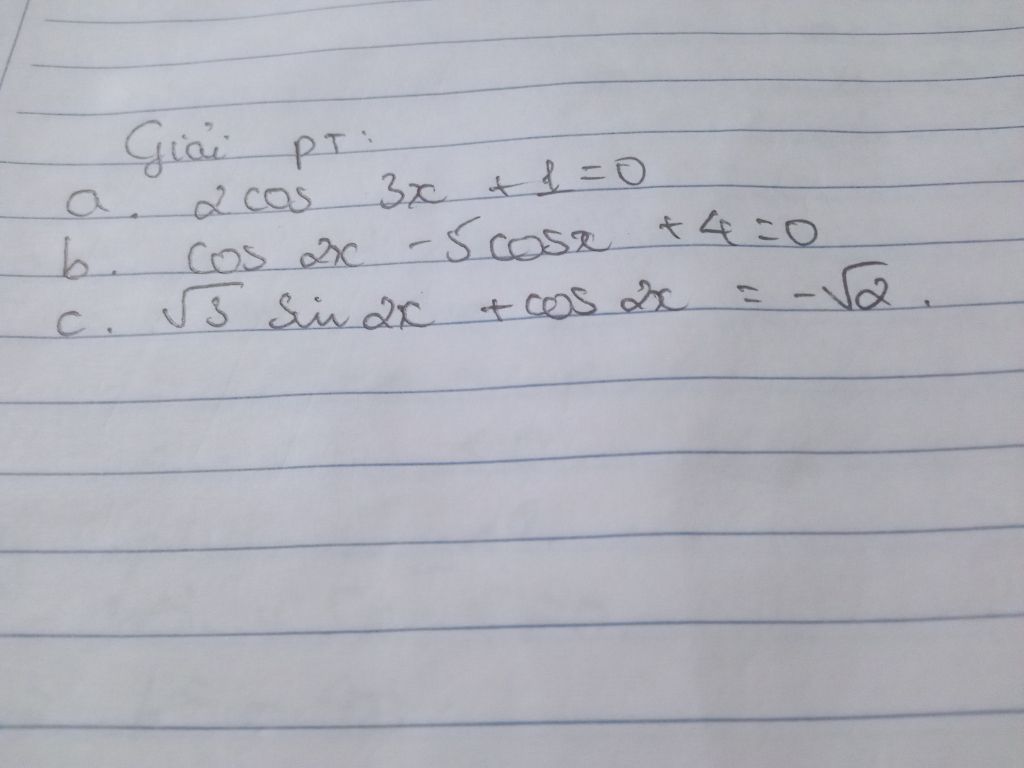 Giải PT:
a. 2 cos 3x + 1 = 0
b. cos 2x - 5 cosx + 4 = 0
c. √3 sin 2x + cos 2x = -√2.